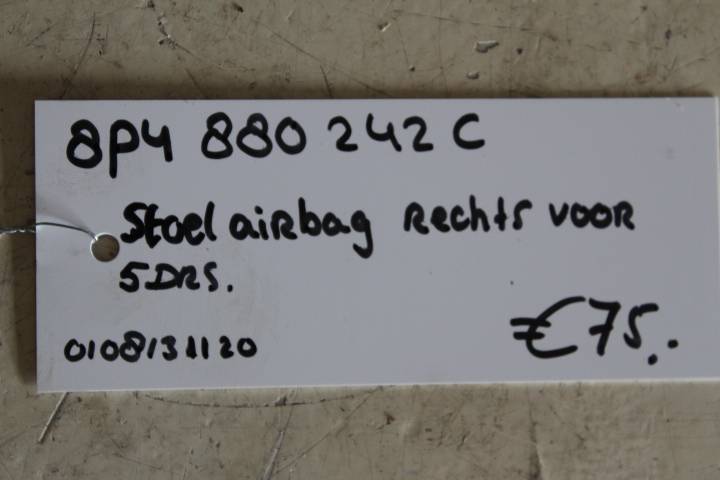 8P4 880 242 C
Stoel airbag Rechts voor
5DRS.
0108131120
€75..